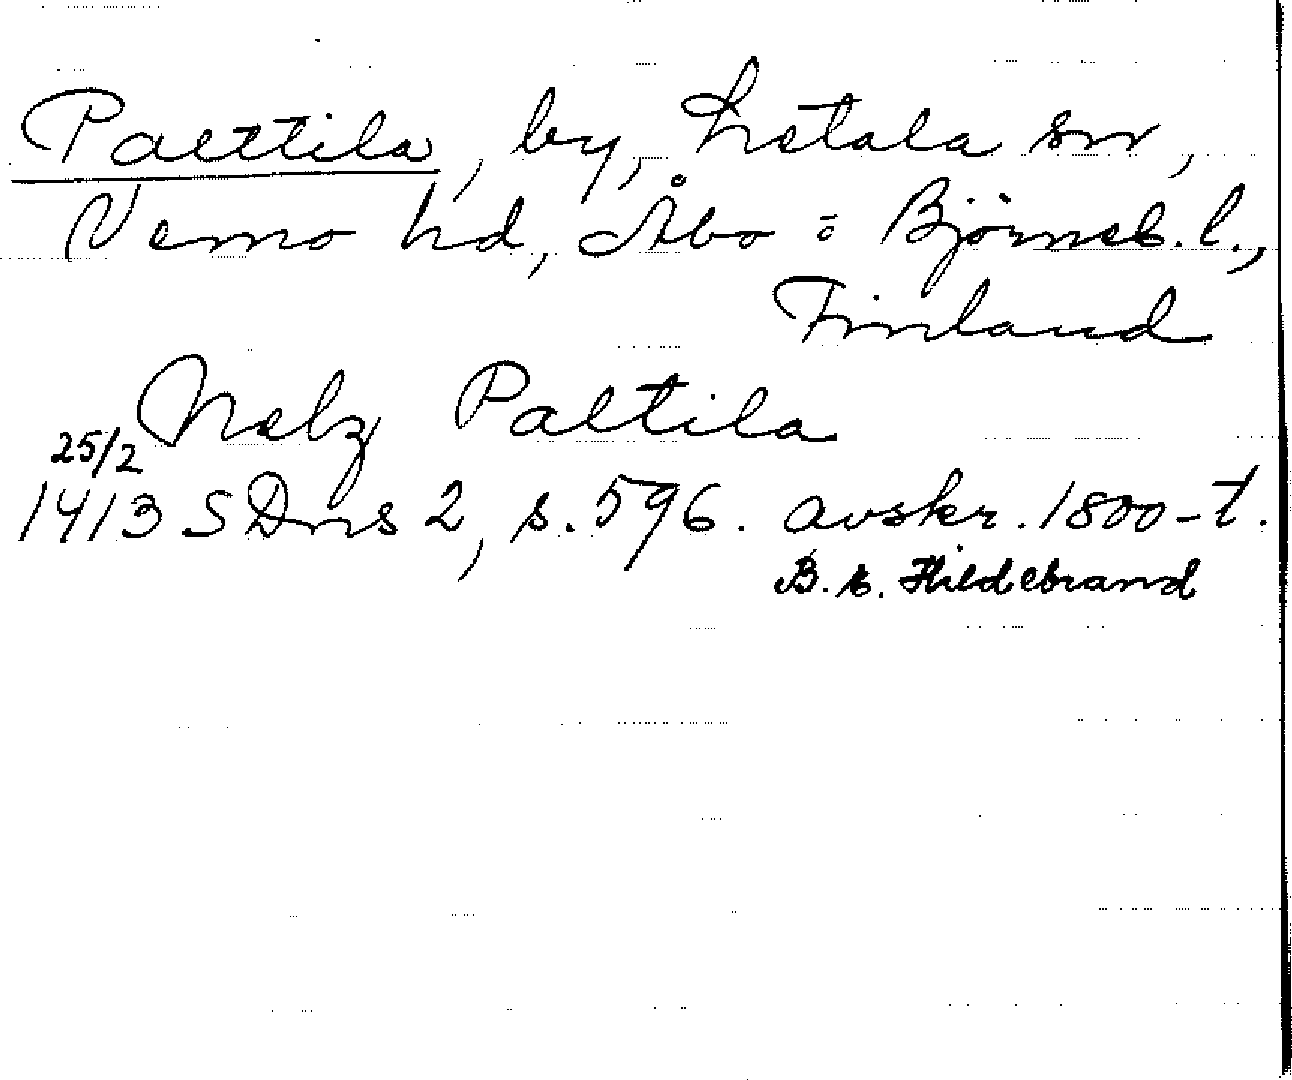 Palttila, by, Letala sn,
Vemo hd, Åbo o Björneb. l.,
Finland
Nelz Paltila
25/2
1413 SDns 2, s. 596. avskr. 1800-t.
B. E. Hildebrand